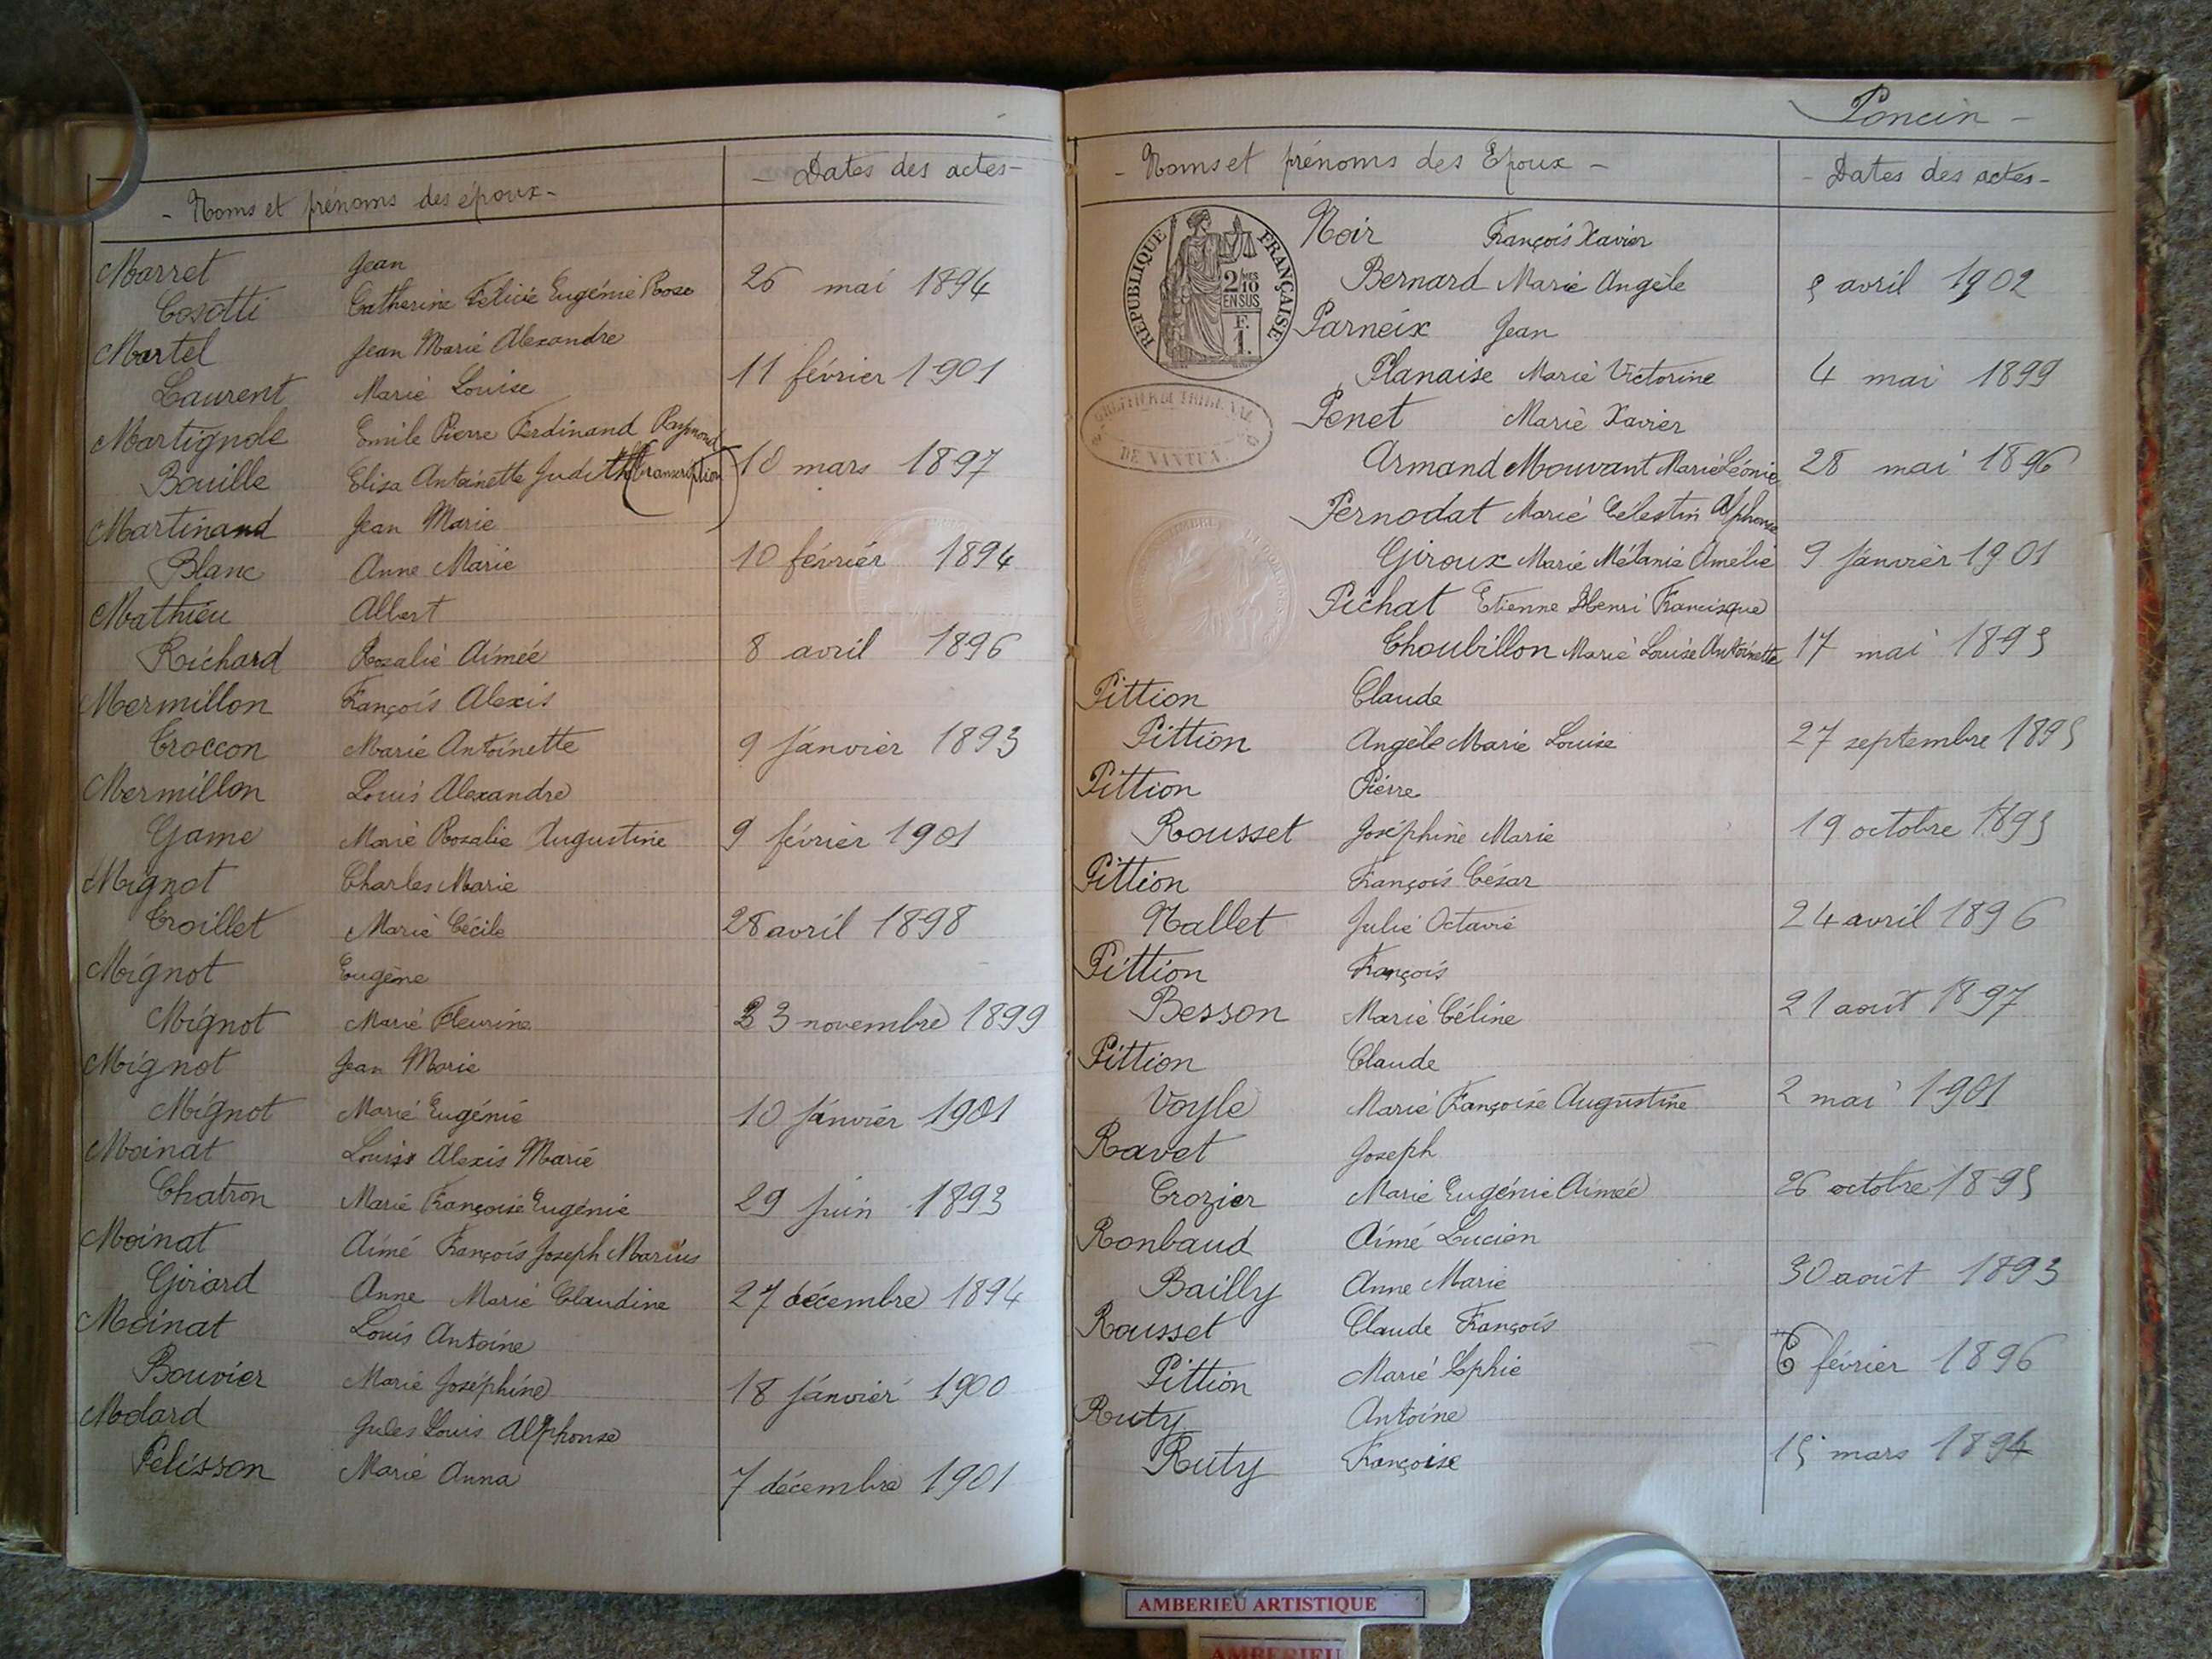 - Noms et prénoms des époux -
- Dates des actes -
Marret Jean
Cosotti Catherine Félicie Eugénie Rose 26 mai 1894
Martel Jean Marie Alexandre
Laurent Marie Louise 11 février 1901
Martignole Emile Pierre Ferdinand Raymond
Bouille Elisa Antoinette Judith (transcription) 10 mars 1897
Martinand Jean Marie
Blanc Anne Marie 10 février 1894
Mathieu Albert
Richard Rosalie Aimée 8 avril 1896
Mermillon François Alexis
Croccon Marie Antoinette 9 janvier 1893
Mermillon Louis Alexandre
Game Marie Rosalie Augustine 9 février 1901
Mignot Charles Marie
Croillet Marie Cécile 28 avril 1898
Mignot Eugène
Mignot Marie Fleurine 23 novembre 1899
Mignot Jean Marie
Mignot Marie Eugénie 10 janvier 1901
Moinat Louis Alexis Marie
Chatron Marie Françoise Eugénie 29 juin 1893
Moinat Aimé François Joseph Marius
Girard Anne Marie Claudine 27 décembre 1894
Moinat Louis Antoine
Bouvier Marie Joséphine 18 janvier 1900
Molard Jules Louis Alphonse
Pelisson Marie Anna 7 décembre 1901
Poncin -
- Noms et prénoms des Epoux -
- Dates des actes -
RÉPUBLIQUE FRANÇAISE
2/10 MES
EN SUS
F.
1.
GREFFE DU TRIBUNAL
DE NANTUA
Noir François Xavier
Bernard Marie Angèle avril 1902
Parneix Jean
Planaise Marie Victorine 4 mai 1899
Penet Marie Xavier
Armand Mouvant Marie Léonie 28 mai 1896
Pernodat Marie Célestin Alphonse
Giroux Marie Mélanie Amélie 9 janvier 1901
Pichat Etienne Henri Francisque
Choubillon Marie Louise Antoinette 17 mai 1895
Pittion Claude
Pittion Angèle Marie Louise 27 septembre 1895
Pittion Pierre
Rousset Joséphine Marie 19 octobre 1895
Pittion François César
Nallet Julie Octavie 24 avril 1896
Pittion François
Besson Marie Céline 21 août 1897
Pittion Claude
Voyle Marie Françoise Augustine 2 mai 1901
Ravet Joseph
Crozier Marie Eugénie Aimée 26 octobre 1895
Ronbaud Aimé Lucien
Bailly Anne Marie 30 août 1893
Rousset Claude François
Pittion Marie Sophie 6 février 1896
Ruty Antoine
Ruty Françoise 15 mars 1894
AMBERIEU ARTISTIQUE
AMBERIEU